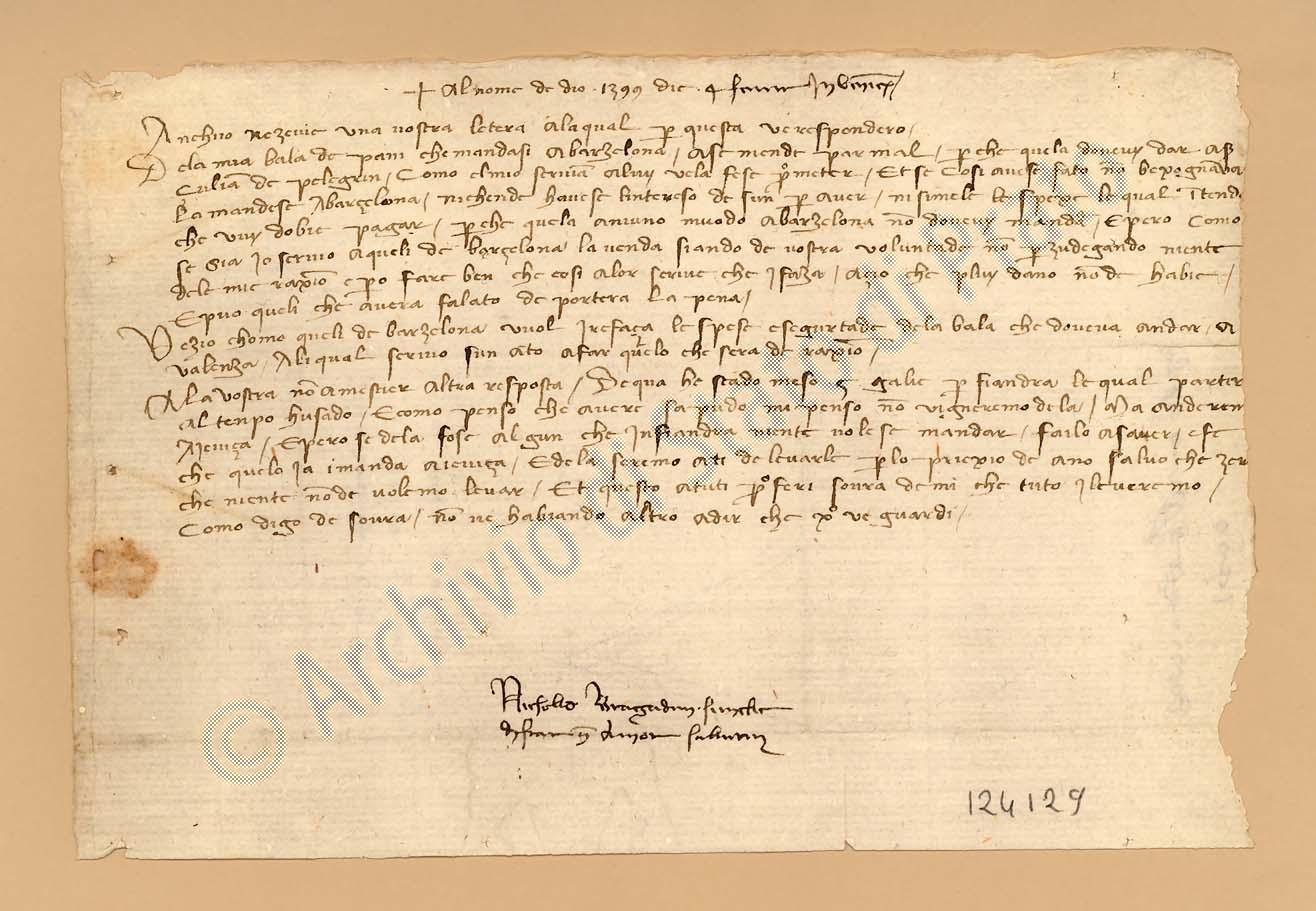 + Al nome de dio . 1399 die . 4 fevrer In venex /
Anchuo rezevie una vostra letera ala qual p questa ve respondero /
Dela mia bala de pani che mandasi a barzelona / ase mende par mal / p che quela dovevy dar
de pelegrin / Como el mio scrivā a luy vela fese pmeter / Et se Cosi avese fato nō bexognava
La mandese A barçelona / ne hende havese lintereso de p aver / ni simele le spexe le qual
che vuy dobie pagar / p che quela a niuno muodo a barzelona nō dovevy manda / E pero Como
se sia Io scrivo a queli de barçelona la venda siando de vostra voluntade nō p zudegando niente
dele mie raxiō e po fare ben che cosi a lor scrive che I faza / azo che pluy dano nō de habie /
E puo queli che avera falato de portera la pena /
Vezio chomo queli de barzelona vuol I refaça le spese e segurtade dela bala che doveva andar / A
valenza / Ali qual scrivo sun ato a far quelo che sera de raxiō /
A La vostra nō A mestier altra resposta / De qua he stado meso galie p fiandra le qual
al tenpo husado / E como penso che avere sapudo mi penso nō vigneremo de la / Ma
/ E pero se dela fose algun che in fiandra niente volese mandar / failo a saver /
che quelo Ia I manda / E dela seremo Ati de levarle p lo priexio de ano salvo che
che niente nō de volemo levar / Et questo a tuti pferi sovra de mi che tuto I leveremo /
Como digo de sovra / nō ne habiando altro a dir che xo ve guardi /
Nicholo Bragadin
124129
© Archivio di Stato di Prato